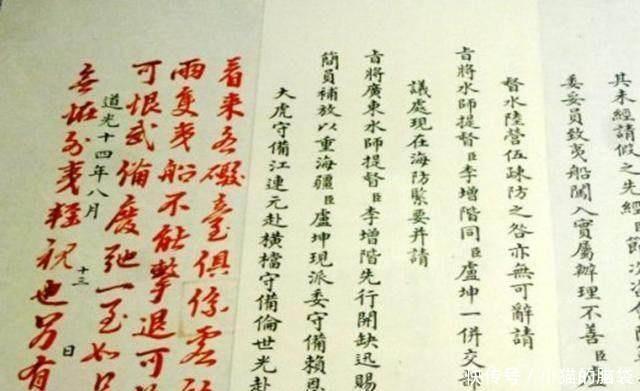 其未經請假之先經臣節次咨
委妥員致夷船闖入實屬辦理不善臣
督水陸營伍疎防之咎亦無可辭請
旨將水師提督臣李增階同臣盧坤一併交
議處現在海防緊要并請
旨將廣東水師提督臣李增階先行開缺迅賜
簡員補放以重海疆臣盧坤現派委守備賴恩
大虎守備江連元赴橫檔守備倫世光赴
看來各礮臺俱係虛
兩隻夷船不能擊退可
可恨武備廢弛一至如
道光十四年八月十三日
無怪外夷輕視也另有
快传号/小猫的脑袋